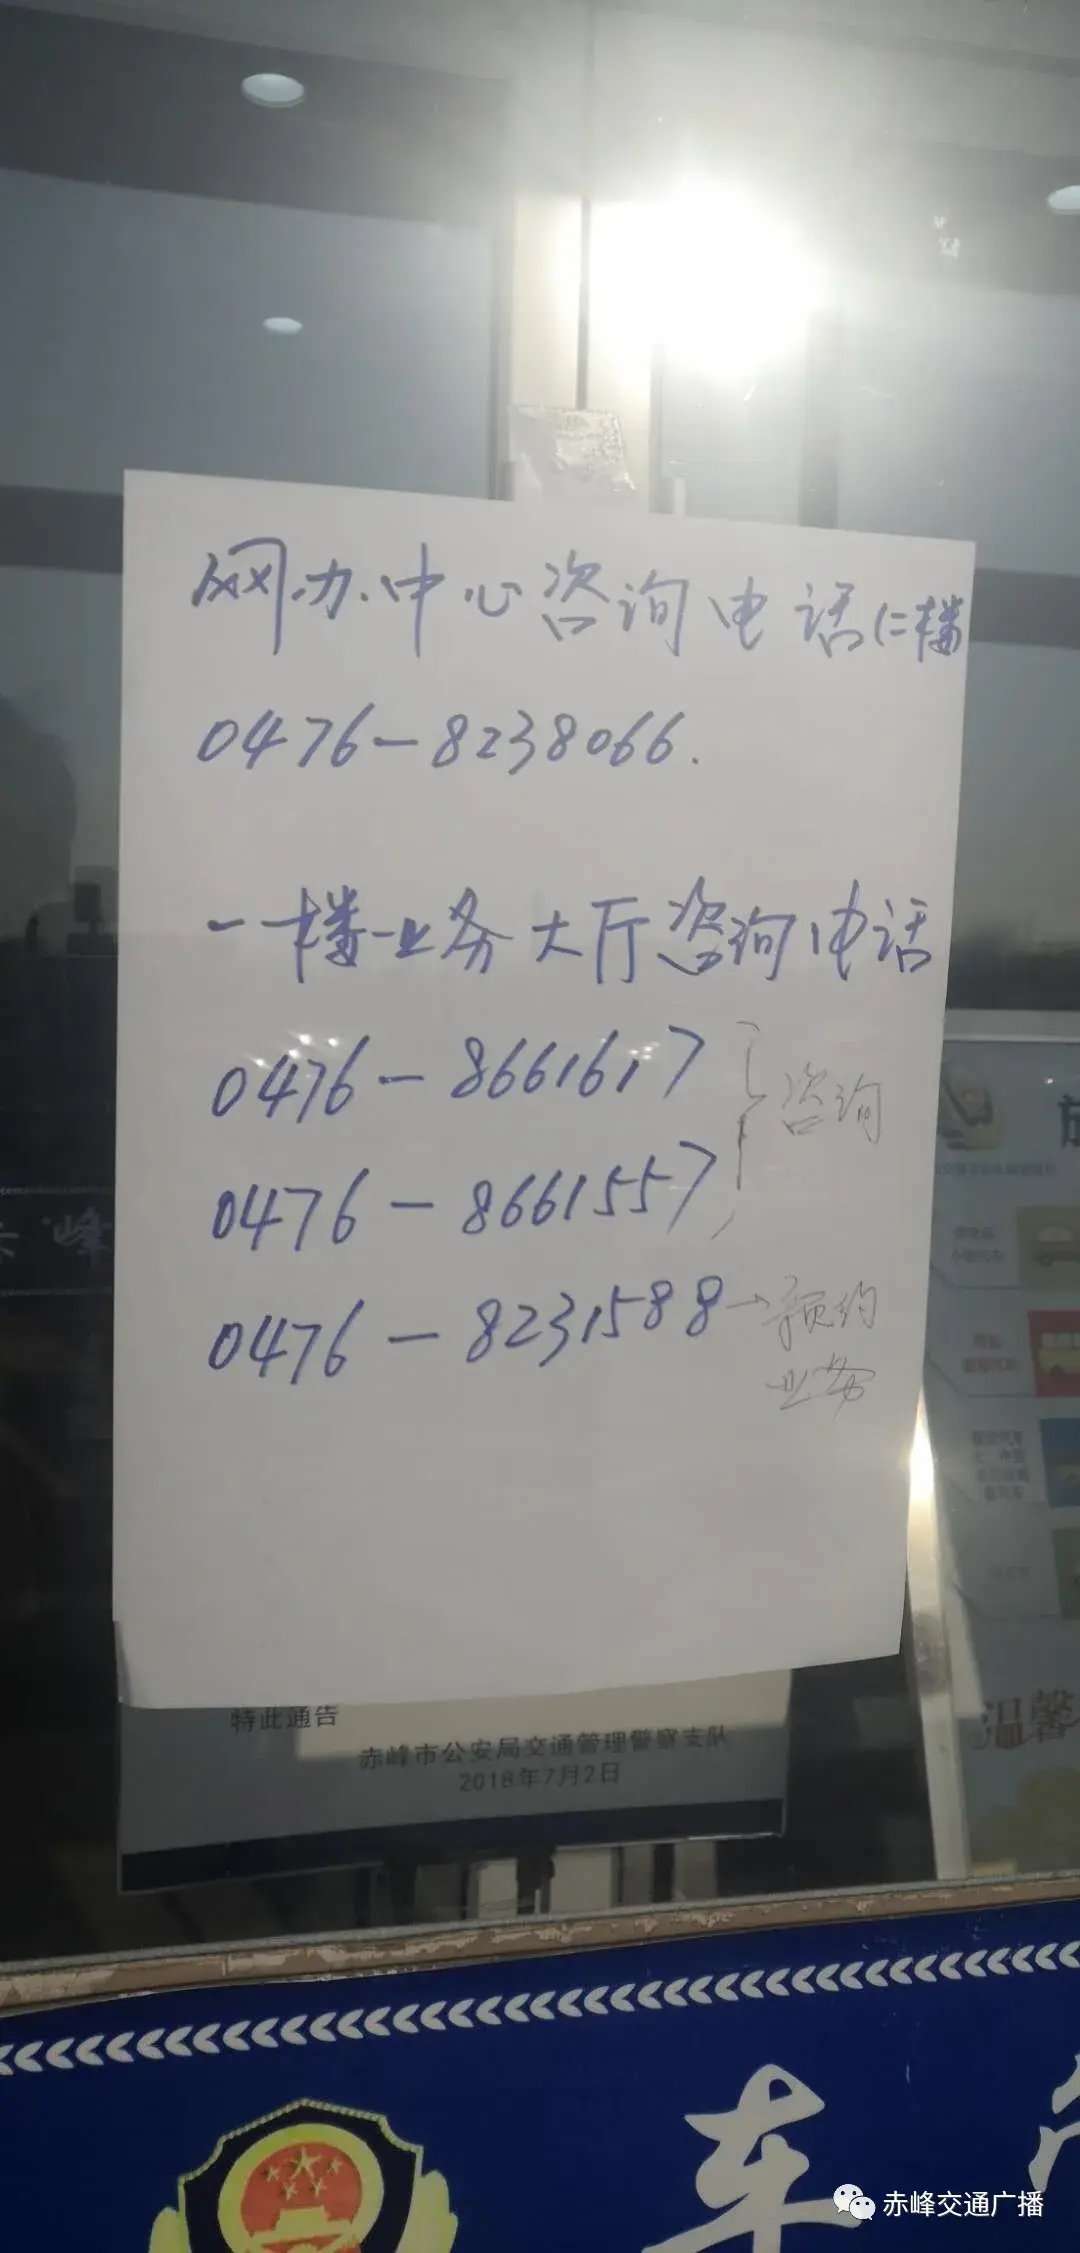 网办中心咨询电话(二楼
0476-8238066.
一楼业务大厅咨询电话
0476-8661617
咨询
0476-8661557
0476-8231588→预约
业务
特此通告
赤峰市公安局交通管理警察支队
2018年7月2日
峰
温馨
车
赤峰交通广播